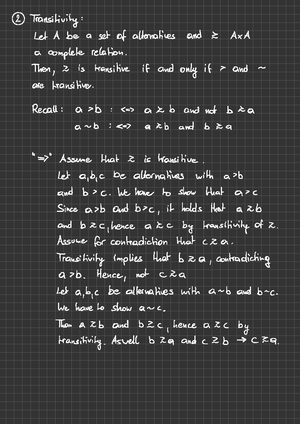 ② Transitivity:
Let A be a set of alternatives and ≿ A×A
a complete relation.
Then, ≿ is transitive if and only if ≻ and ~
are transitive.
Recall: a ≻ b :<=> a ≿ b and not b ≿ a
a ~ b :<=> a ≿ b and b ≿ a
"=>" Assume that ≿ is transitive.
Let a,b,c be alternatives with a ≻ b
and b ≻ c. We have to show that a ≻ c
Since a ≻ b and b ≻ c, it holds that a ≿ b
and b ≿ c, hence a ≿ c by transitivity of ≿.
Assume for contradiction that c ≿ a.
Transitivity implies that b ≿ a, contradicting
a ≻ b. Hence, not c ≿ a
Let a,b,c be alternatives with a ~ b and b ~ c.
We have to show a ~ c.
Then a ≿ b and b ≿ c, hence a ≿ c by
transitivity. Aswell b ≿ a and c ≿ b → c ≿ a.